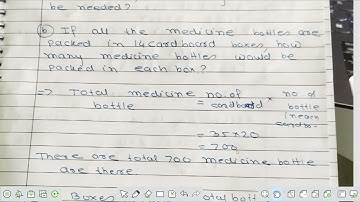 be needed?
(b) If all the medicine bottles are
packed in 14 cardboard boxes, how
many medicine bottles would be
packed in each box?
=> Total medicine no. of
bottle = cardboard × no of
bottle
in each
= 35×20
= 700
There are total 700 medicine bottle
are there
Boxes